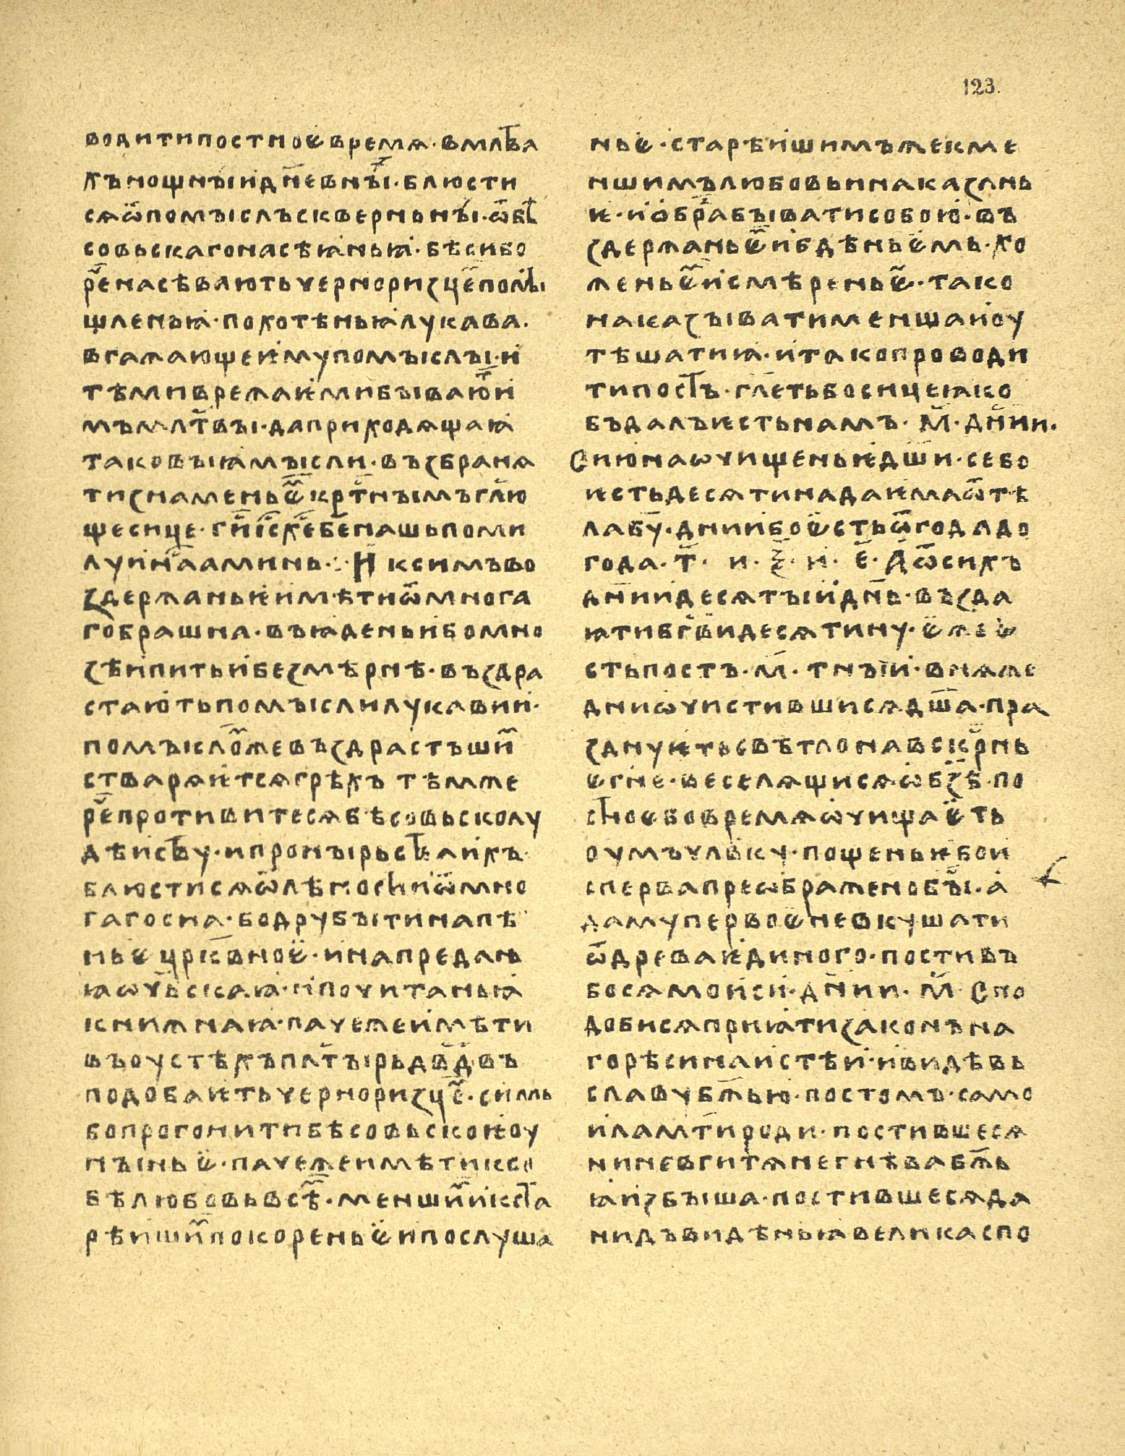 123.
водитипостноѥвремѧ·вмл҃тва
хънощнъіидн҃евнъıⷯ·блюсти
сѧѿпомъıслъсквернънъıⷯ·ѿбѣ
совьскагонасѣꙗньꙗ·бѣсибо
реⷱ҇насѣваютьчерноризцеⷨпомъı
шленьꙗ·похотѣньꙗлукава·
вгажающеимупомъıслъı·и
тѣмиврежаимибъıваютьи
мъмл҃твъı·даприходѧщаꙗ
таковъıꙗмъıсли·възбранѧ
тизнаменьѥⷨкрⷭ҇тнъıмъгл҃ю
щесице·гиⷭ҇іс҃ех҃ебе҃нашьпоми
луинⷭ҇ааминь·:·И ксимъво
здержаньѥимѣтиѿмнога
гобрашна·въꙗденьиибомно
зѣипитьибезмѣрнѣ·въздра
стаютьпомъıслилукавии·
помъıсломⷤевъздрастъшиⷨ
стварѧѥтсѧгрѣхъ тѣмже
реⷱ҇противитесѧбѣсовьскому
дѣиству·ипронъıрьствуихъ·
блюстисѧѿлѣностииѿмно
гагосна·бодрубъıтинапѣ
ньѥцр҃квноѥ·инапреданьꙗ
ѡч҃ьскаꙗ·ипочитаньꙗ
книжнаꙗ·пачежеимѣти
въоустѣхъпл҃тъıрьдв҃двъ
подобаѥтьчерноризцеⷨ·симь
бопрогонитибѣсовьскоѥоу
нъıньѥ·пачежеимѣтиксо
бѣлюбовьвсѣⷨ·меншиⷨикста
рѣишиⷨпокореньѥипослуша
ньѥ·старѣишимъжекме
ншимълюбовьинаказань
ѥ·иобразⷥбъıватисобою·въ
здержаньѥⷨибдѣньѥмь·хо
женьѥⷨисмѣреньѥⷨ·тако
наказъıватименшаиоу
тѣшатиꙗ·итакопроводи
типостъ·гл҃етьбосицеꙗко
б҃ъдалъѥстьнамъ·М҃·дн҃ии·
Сиюнаѡчищеньѥдш҃и·себо
ѥстьдесѧтинадаѥмаѿтѣ
лаб҃у·дниибоѥстьѿгодадо
года·т҃· и·ѯ҃·и·е҃·Аѿсихъ
дн҃иидесѧтъıидн҃ь·възда
ꙗтибг҃видесѧтину·ѥже
стьпостъ·м҃·тнъıи·внѧже
дниѡчистившисѧдш҃а·пра
зднуѥтьсвѣтлонавскрⷭ҇нь
ѥгн҃е·веселѧщисѧѡбз҃ѣ·по
стноѥбовремѧѡчищаѥть
оумъчл҃вку·пощеньѥбои
спервапреѡбраженобъıⷭ҇·а
дамупервоѥневкушати
ѿдреваѥдиного·постивъ
босѧмоиси·дн҃ии·м҃·Спо
добисѧприꙗтизаконъна
горѣсинаистѣи·ивидѣвъ
славубж҃ью·постомъ·само
иламт҃ироди·постившесѧ
ниневгитѧнегнѣвабж҃ь
ꙗизбъıша·постившесѧда
нидъвидѣньꙗвеликаспо